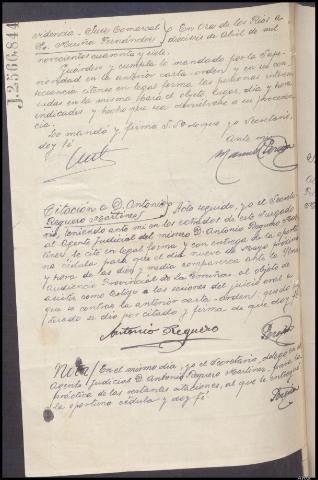 J.2566.844
videncia. Juez Comarcal
Sr. Mariño Fernández
En Cra de los Ríos a
dieciséis de Abril de mil
novecientos cuarenta y siete
Guárdese y cumpla lo mandado por la Supe-
rioridad en la anterior carta-orden, y en su con-
secuencia cítense en legal forma las personas intere-
sadas en la misma para el objeto, lugar, día y hora
indicados y hecho que sea devuélvase a su proceden-
cia.
Lo mandó y firma S.Sª de que yo Secretario,
doy fé
Ante mi
Manuel
Citación a D. Antonio
Reguero Martínez
Acto seguido, yo el Secreta-
rio, teniendo ante mi en los estrados de este Juzgado
al Agente Judicial del mismo D. Antonio Reguero Mar-
tínez, le cité en legal forma y con entrega de la oportu-
na cédula para que el día nueve de Mayo próximo
y hora de las diez y media comparezca ante la
Audiencia Provincial de La Coruña, al objeto de
asistir como testigo a las sesiones del juicio oral a
que se contrae la anterior carta-orden; quedó en-
terado se dió por citado y firma de que doy fé
Antonio Reguero
Nota/ En el mismo día, yo el Secretario delego en el
Agente Judicial D. Antonio Reguero Martínez, para la
práctica de las restantes citaciones, al que le entregué
la oportuna cédula y doy fé